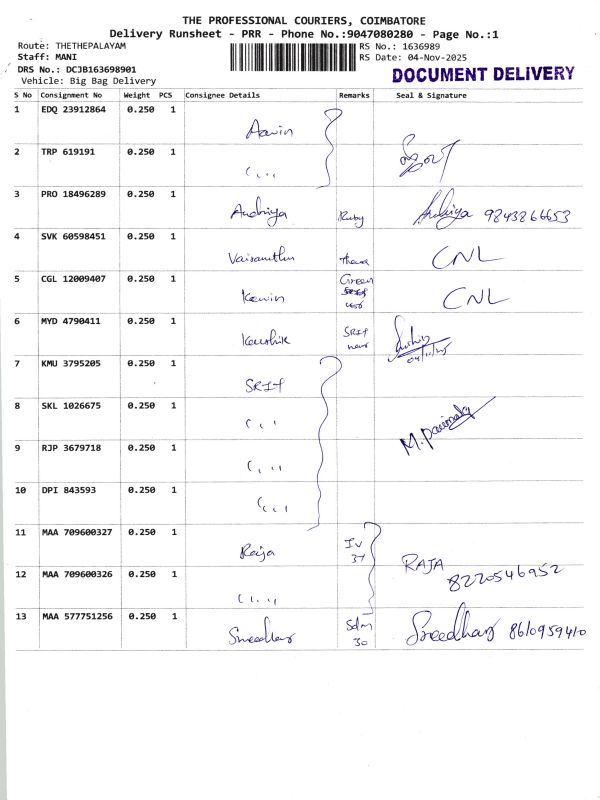 THE PROFESSIONAL COURIERS, COIMBATORE
Delivery Runsheet - PRR - Phone No.:9047080280 - Page No.:1
Route: THETHEPALAYAM
Staff: MANI
DRS No.: DCJB163698901
Vehicle: Big Bag Delivery
RS No.: 1636989
RS Date: 04-Nov-2025
DOCUMENT DELIVERY
S No Consignment No Weight PCS Consignee Details Remarks Seal & Signature
1 EDQ 23912864 0.250 1
2 TRP 619191 0.250 1
3 PRO 18496289 0.250 1 Andriya Ruby 9843866653
4 SVK 60598451 0.250 1 CNL
5 CGL 12009407 0.250 1 Kavin Green CNL
6 MYD 4790411 0.250 1 Kaushik SRIT near 04/11/25
7 KMU 3795205 0.250 1 SRIT
8 SKL 1026675 0.250 1
9 RJP 3679718 0.250 1
10 DPI 843593 0.250 1
11 MAA 709600327 0.250 1 Raja IV 37 RAJA 8220546952
12 MAA 709600326 0.250 1
13 MAA 577751256 0.250 1 Sreedhar Sdm 30 Sreedhar 8610959410